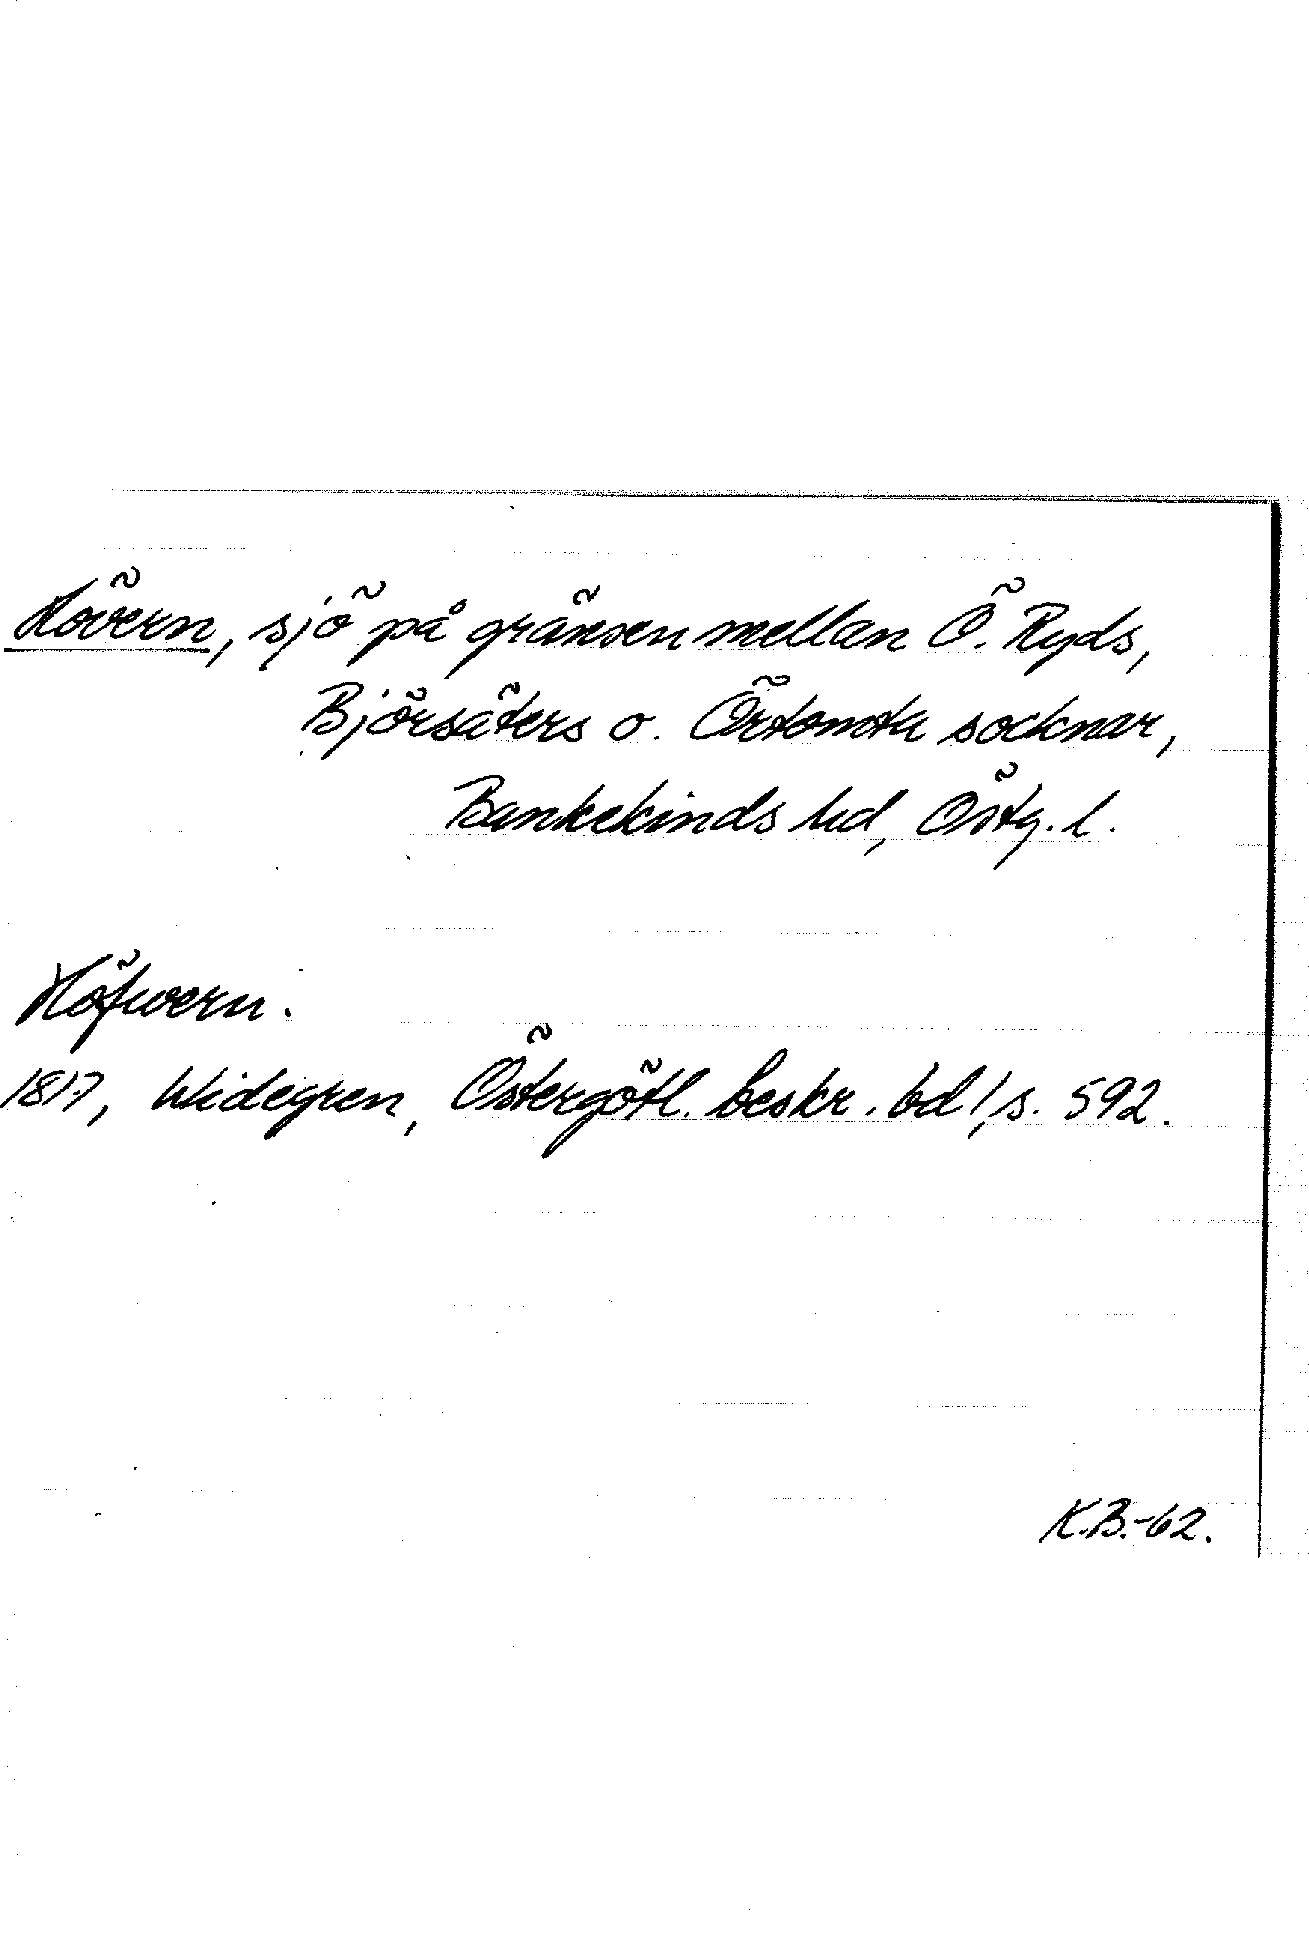 Hövern, sjö på gränsen mellan Ö. Ryds,
Björsäters o. Örtomta socknar,
Bankekinds hd, Östg. l.
Höfwern.
1817, Widegren, Östergötl. beskr. bd 1, s. 592.
K.B.-62.